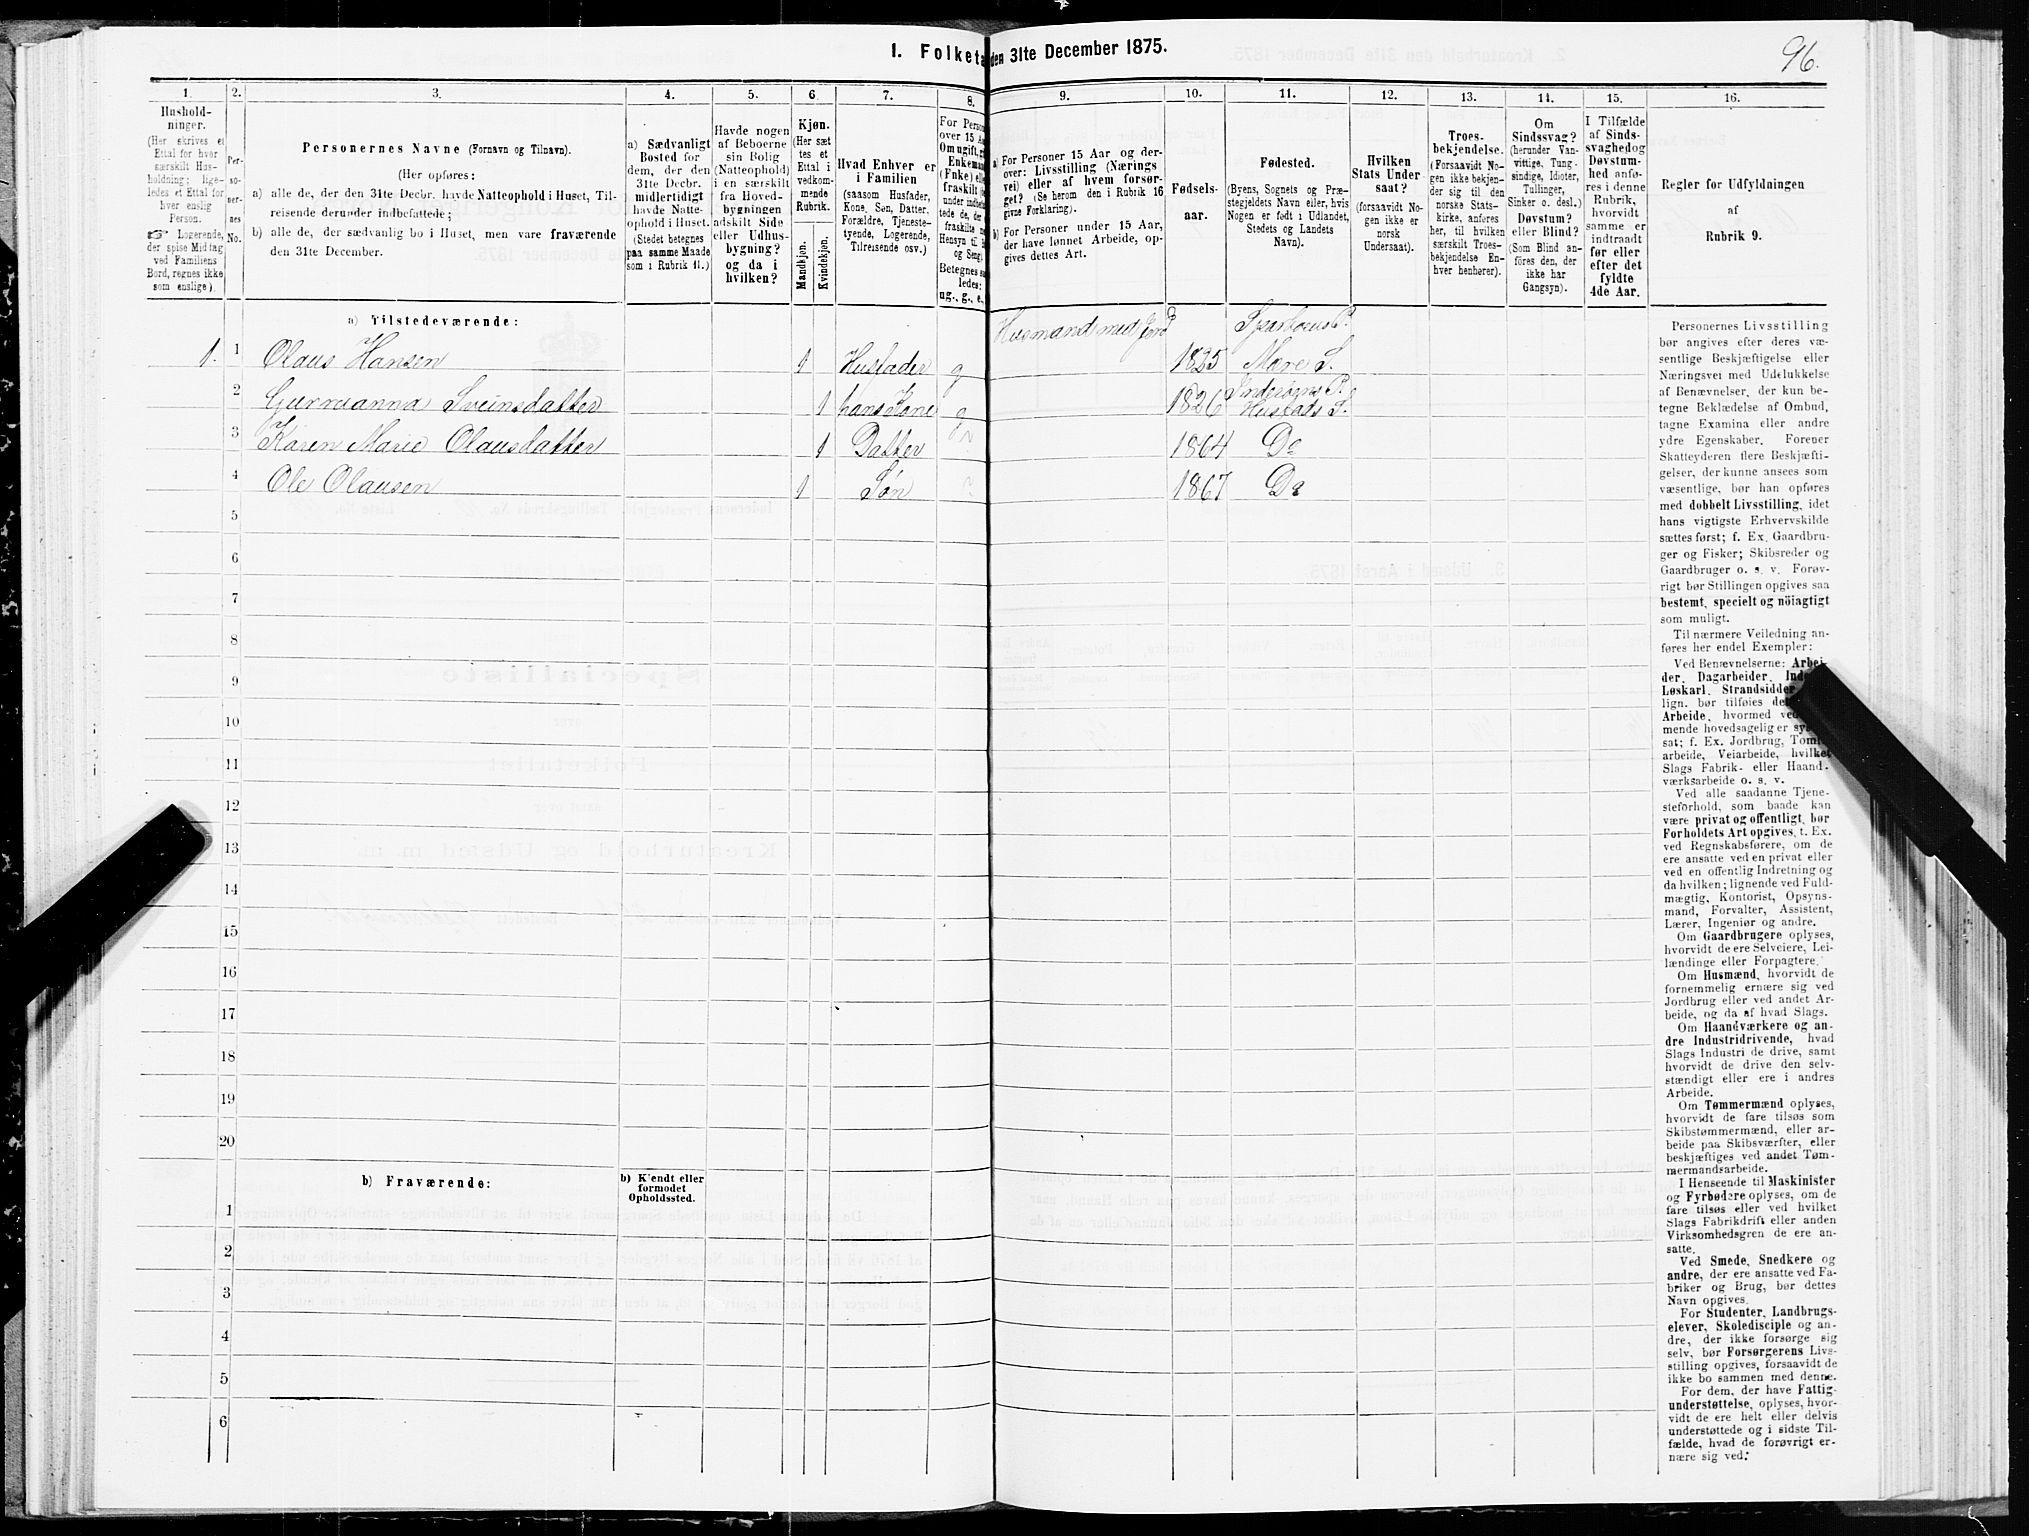 96.
1. Folketa den 31te December 1875.
1. 2. 3. 4. 5. 6. 7. 8. 9. 10. 11. 12. 13. 14. 15. 16.
Hushold-
ninger.
(Her skrives et
Ettal for hver
særskilt Hus-
holdning; lige-
ledes et Ettal for
hver enslig
Person.
☞ Logerende,
der spise Middag
ved Familiens
Bord, regnes ikke
som enslige).
Per-
so-
ner-
nes
No.
Personernes Navne (Fornavn og Tilnavn).
(Her opføres:
a) alle de, der den 31te Decbr. havde Natteophold i Huset, Til-
reisende derunder indbefattede;
b) alle de, der sædvanlig bo i Huset, men vare fraværende
den 31te December.
a) Sædvanligt
Bosted for
dem, der den
31te Decbr.
midlertidigt
havde Natte-
ophold i Huset.
(Stedet betegnes
paa samme Maade
som i Rubrik 11.)
Havde nogen
af Beboerne
sin Bolig
(Natteophold)
i en særskilt
fra Hoved-
bygningen
adskilt Side
eller Udhus-
bygning?
og da i
hvilken?
Kjøn.
(Her sæt
tes et
Ettal i
vedkom-
mende
Rubrik.
Mandkjøn.
Kvindekjøn.
Hvad Enhver er
i Familien
(saasom Husfader,
Kone, Søn, Datter,
Forældre, Tjeneste-
tyende, Logerende,
Tilreisende osv.)
For Person
over 15 Aar
Om ugift, g
Enkeman
(Enke) elle
fraskilt
Betegnes sa
ledes:
ug., g., e.,
a) For Personer 15 Aar og der-
over: Livsstilling (Nærings
vei) eller af hvem forsør-
get? (Se herom den i Rubrik 16
givne Forklaring).
b) For Personer under 15 Aar,
der have lønnet Arbeide, op-
gives dettes Art.
Fødsels-
aar.
Fødested.
(Byens, Sognets og Præ-
stegjeldets Navn eller, hvis
Nogen er født i Udlandet,
Stedets og Landets
Navn).
Hvilken
Stats Under
saat?
(forsaavidt No-
gen ikke er
norsk
Undersaat).
Troes-
bekjendelse.
(Forsaavidt No-
gen ikke bekjen-
der sig til den
norske Stats-
kirke, anføres
her, til hvilken
særskilt Troes-
bekjendelse En-
hver henhører).
Om
Sindssvag?
(herunder Van-
vittige, Tung-
sindige, Idioter,
Tullinger,
Sinker o. desl.)
Døvstum?
eller Blind?
(Som Blind an-
föres den, der
ikke har
Gangsyn).
I Tilfælde
af Sinds-
svaghed og
Døvstum-
hed anfø-
res i denne
Rubrik,
hvorvidt
samme er
indtraadt
før eller
efter det
fyldte
4de Aar.
Regler for Udfyldningen
af
Rubrik 9.
a) Tilstedeværende:
Husmand med Jord Sparboens P.
1. 1 Olaus Hansen 1 Husfader g 1825 Mære S.
Inderøens P.
2 Gurruanna Sveinsdatter 1 hans Kone g 1826 Hustads S.
3 Karen Marie Olausdatter 1 Datter 1864 Do
4 Ole Olausen 1 Søn 1867 Do
5
6
7
8
9
10
11
12
13
14
15
16
17
18
19
20
b) Fraværende:
b) Kjendt eller
formodet
Opholdssted.
1
2
3
4
5
6
Personernes Livsstilling
bør angives efter deres væ-
sentlige Beskjæftigelse eller
Næringsvei med Udelukkelse
af Benævnelser, der kun be-
tegne Beklædelse af Ombud,
tagne Examina eller andre
ydre Egenskaber. Forener
Skatteyderen flere Beskjæfti-
gelser, der kunne ansees som
væsentlige, bør han opføres
med dobbelt Livsstilling, idet
hans vigtigste Erhvervskilde
sættes først; f. Ex. Gaardbru-
ger og Fisker; Skibsreder og
Gaardbruger o. s. v. Forøv-
rigt bør Stillingen opgives saa
bestemt, specielt og nöiagtigt
som muligt.
Til nærmere Veiledning an-
føres her endel Exempler:
Ved Benævnelserne: Arbei-
der, Dagarbeider, Inder
Løskarl, Strandsidder
lign. bør tilføies de
Arbeide, hvormed ved
mende hovedsagelig er sys
sat; f. Ex. Jordbrug, Tøm
arbeide, Veiarbeide, hvilket
Slags Fabrik- eller Haand-
værksarbeide o. s. v.
Ved alle saadanne Tjene-
steforhold, som baade kan
være privat og offentligt, bør
Forholdets Art opgives, t. Ex.
ved Regnskabsførere, om de
ere ansatte ved en privat eller
ved en offentlig Indretning og
da hvilken; lignende ved Fuld-
mægtig, Kontorist, Opsyns-
mand, Forvalter, Assistent,
Lærer, Ingeniør og andre.
Om Gaardbrugere oplyses,
hvorvidt de ere Selveiere, Lei-
lændinge eller Forpagtere.
Om Husmænd, hvorvidt de
fornemmelig ernære sig ved
Jordbrug eller ved andet Ar-
beide, og da af hvad Slags.
Om Haandværkere og an-
dre Industridrivende, hvad
Slags Industri de drive, samt
hvorvidt de drive den selv-
stændigt eller ere i andres
Arbeide.
Om Tømmermænd oplyses,
hvorvidt de fare tilsøs som
Skibstømmermænd, eller ar-
beide paa Skibsværfter, eller
beskjæftiges ved andet Tøm-
mermandsarbeide.
I Henseende til Maskinister
og Fyrbødere oplyses, om de
fare tilsøs eller ved hvilket
Slags Fabrikdrift eller anden
Virksomhedsgren de ere an-
satte.
Ved Smede, Snedkere og
andre, der ere ansatte ved Fa-
briker og Brug, bør dettes
Navn opgives.
For Studenter, Landbrugs-
elever, Skoledisciple og an-
dre, der ikke forsørge sig
selv, bør Forsørgerens Livs-
stilling opgives, forsaavidt de
ikke bo sammen med denne.
For dem, der have Fattig-
understøttelse, oplyses, hvor-
vidt de ere helt eller delvis
understøttede og i sidste Til-
fælde, hvad de forøvrigt er-
nære sig ved.